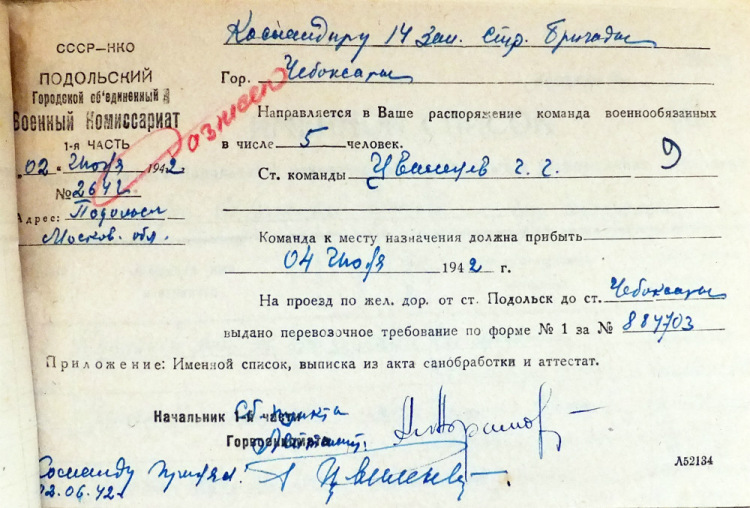 СССР-НКО
ПОДОЛЬСКИЙ
Городской об'единенный
Военный Комиссариат
1-я ЧАСТЬ
„02" Июля 1942
№ 2641
Адрес: Подольск
Москов. обл.
Командиру 14 Зап. Стр. Бригады
Гор. Чебоксары
Направляется в Ваше распоряжение команда военнообязанных
в числе 5 человек.
Ст. команды
9
Команда к месту назначения должна прибыть
04 Июля 1942 г.
На проезд по жел. дор. от ст. Подольск до ст. Чебоксары
выдано перевозочное требование по форме № 1 за № 884703
Приложение: Именной список, выписка из акта санобработки и аттестат.
Начальник 1-й части
Горвоенкомата
пункта
Команду принял.
Л52134